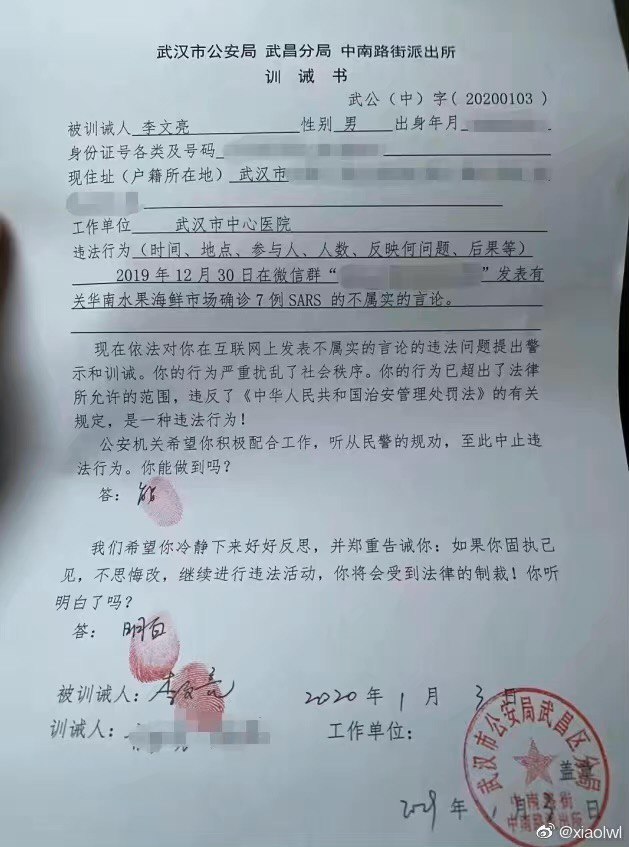 武汉市公安局 武昌分局 中南路街派出所
训 诫 书
武公（中）字（20200103）
被训诫人 李文亮 性别 男 出身年月
身份证号各类及号码
现住址（户籍所在地） 武汉市
工作单位 武汉市中心医院
违法行为（时间、地点、参与人、人数、反映何问题、后果等）
2019年12月30日在微信群“ ”发表有
关华南水果海鲜市场确诊7例SARS 的不属实的言论。
现在依法对你在互联网上发表不属实的言论的违法问题提出警
示和训诫。你的行为严重扰乱了社会秩序。你的行为已超出了法律
所允许的范围，违反了《中华人民共和国治安管理处罚法》的有关
规定，是一种违法行为！
公安机关希望你积极配合工作，听从民警的规劝，至此中止违
法行为。你能做到吗？
答： 能
我们希望你冷静下来好好反思，并郑重告诫你：如果你固执己
见，不思悔改，继续进行违法活动，你将会受到法律的制裁！你听
明白了吗？
答： 明白
被训诫人： 李文亮 2020 年 1 月 3 日
训诫人： 工作单位：
武汉市公安局武昌区分局
盖章
中南路街
年 1 月 3 日
@xiaolwl